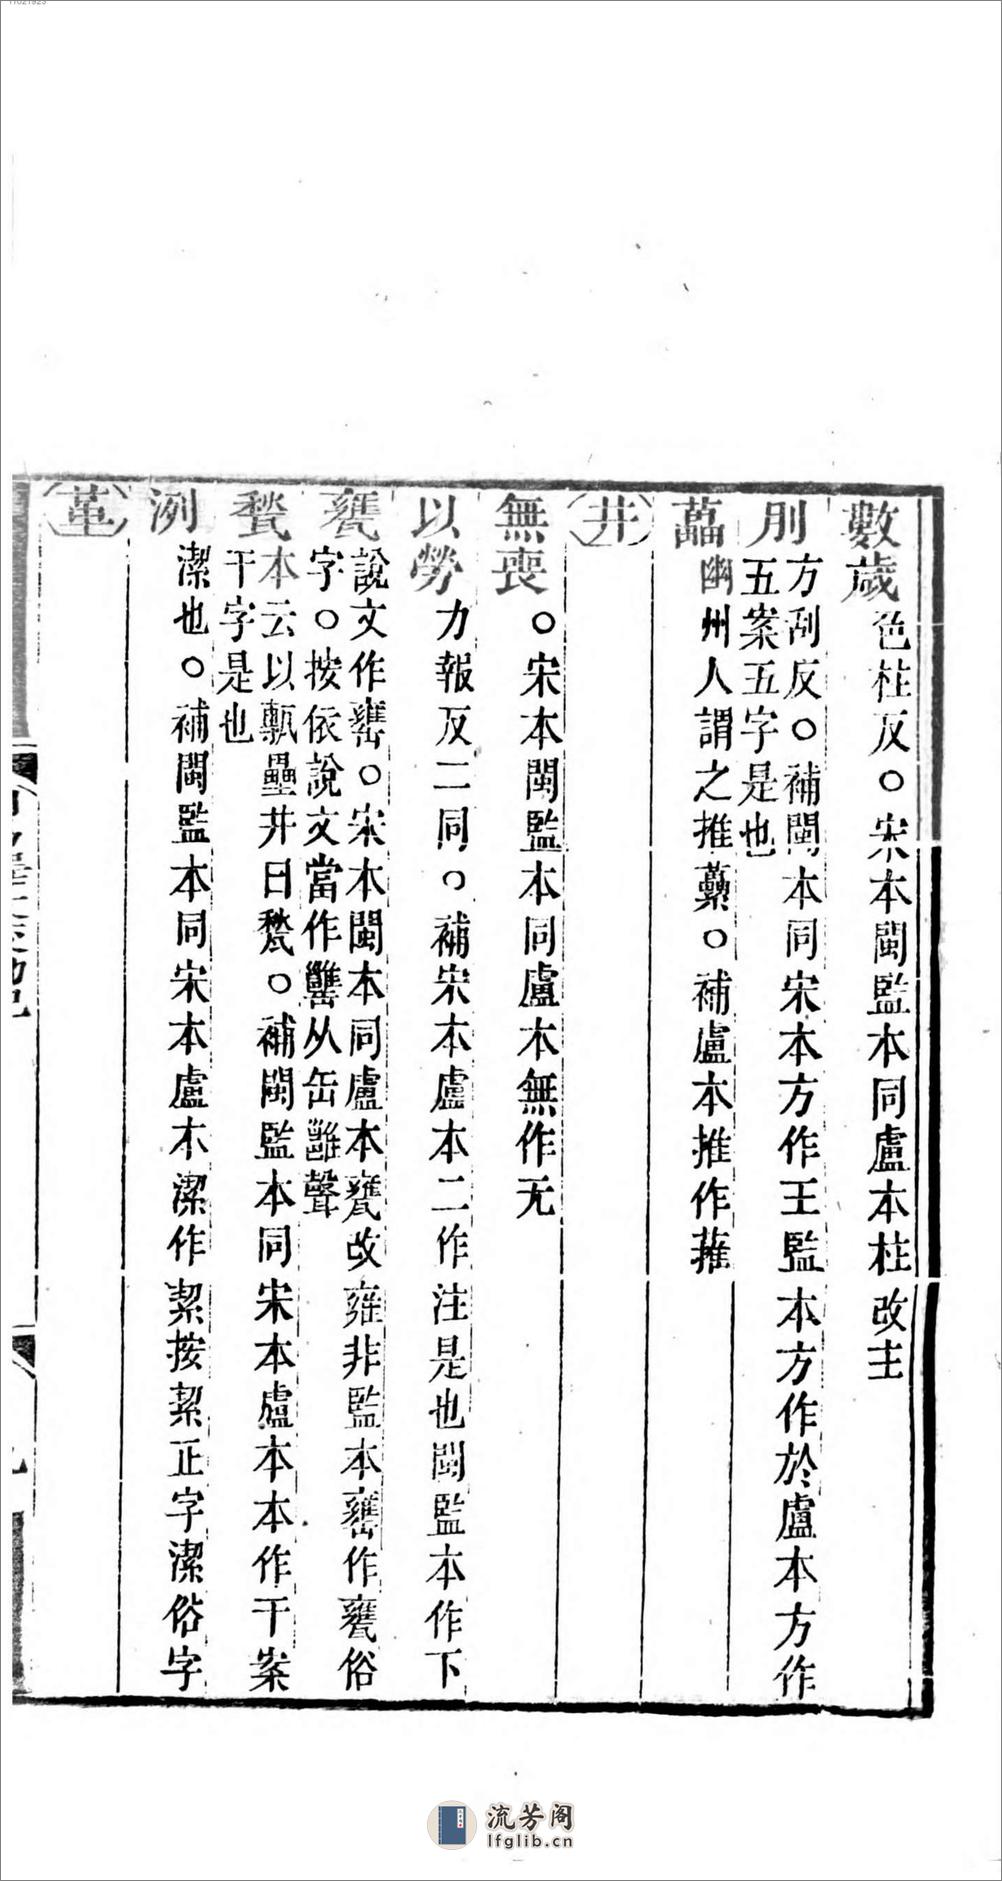 數歲色柱反○宋本閩監本同盧本柱改主
刖方刮反○補閩本同宋本方作王監本方作於盧本方作
五案五字是也
藟幽州人謂之推藟○補盧本推作蓷
井
無喪○宋本閩監本同盧本無作无
以勞力報反二同○補宋本盧本二作注是也閩監本作下
甕說文作罋○宋本閩本同盧本甕改雍非監本罋作甕俗
字○按依說文當作䍍从缶雝聲
甃本云以甎壘井曰甃○補閩監本同宋本盧本本作干案
干字是也
洌潔也○補閩監本同宋本盧本潔作絜按絜正字潔俗字
革
流芳阁
lfglib.cn